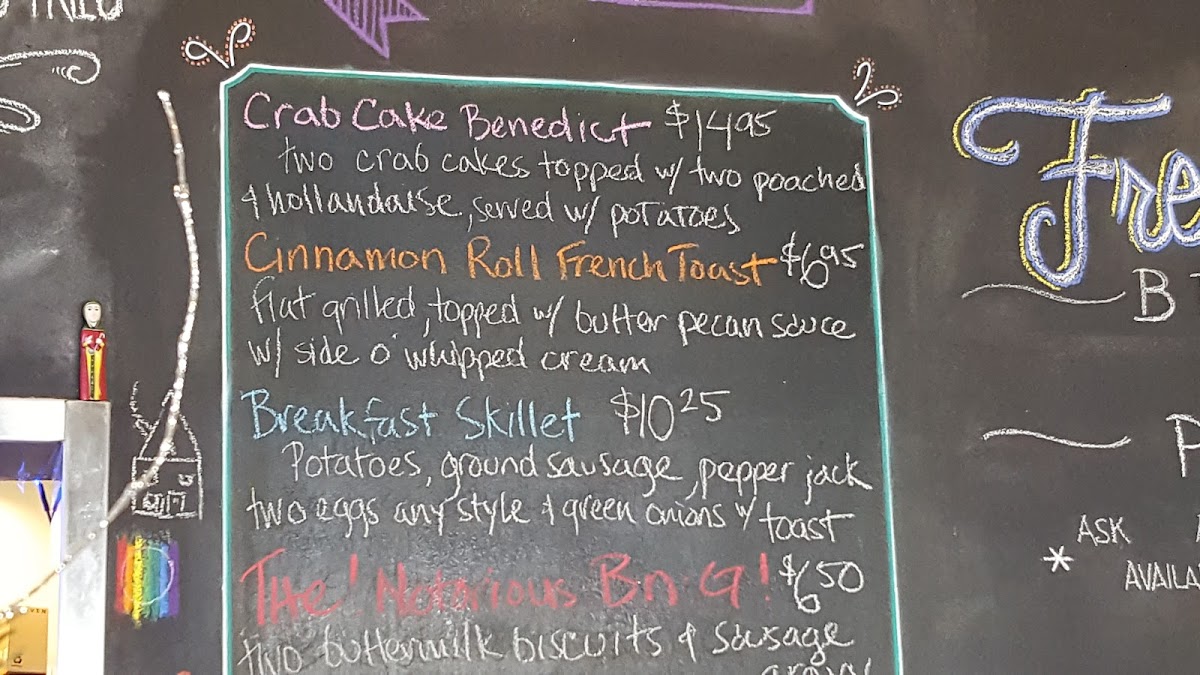 Crab Cake Benedict $14.95
two crab cakes topped w/ two poached
& hollandaise, served w/ potatoes
Cinnamon Roll French Toast $6.95
flat grilled, topped w/ butter pecan sauce
w/ side o' whipped cream
Breakfast Skillet $10.25
Potatoes, ground sausage, pepper jack
two eggs any style & green onions w/ toast
The 'Notorious Bn.G! $6.50
two buttermilk biscuits & sausage
gravy
Fre
B
P
* ASK
AVAILA